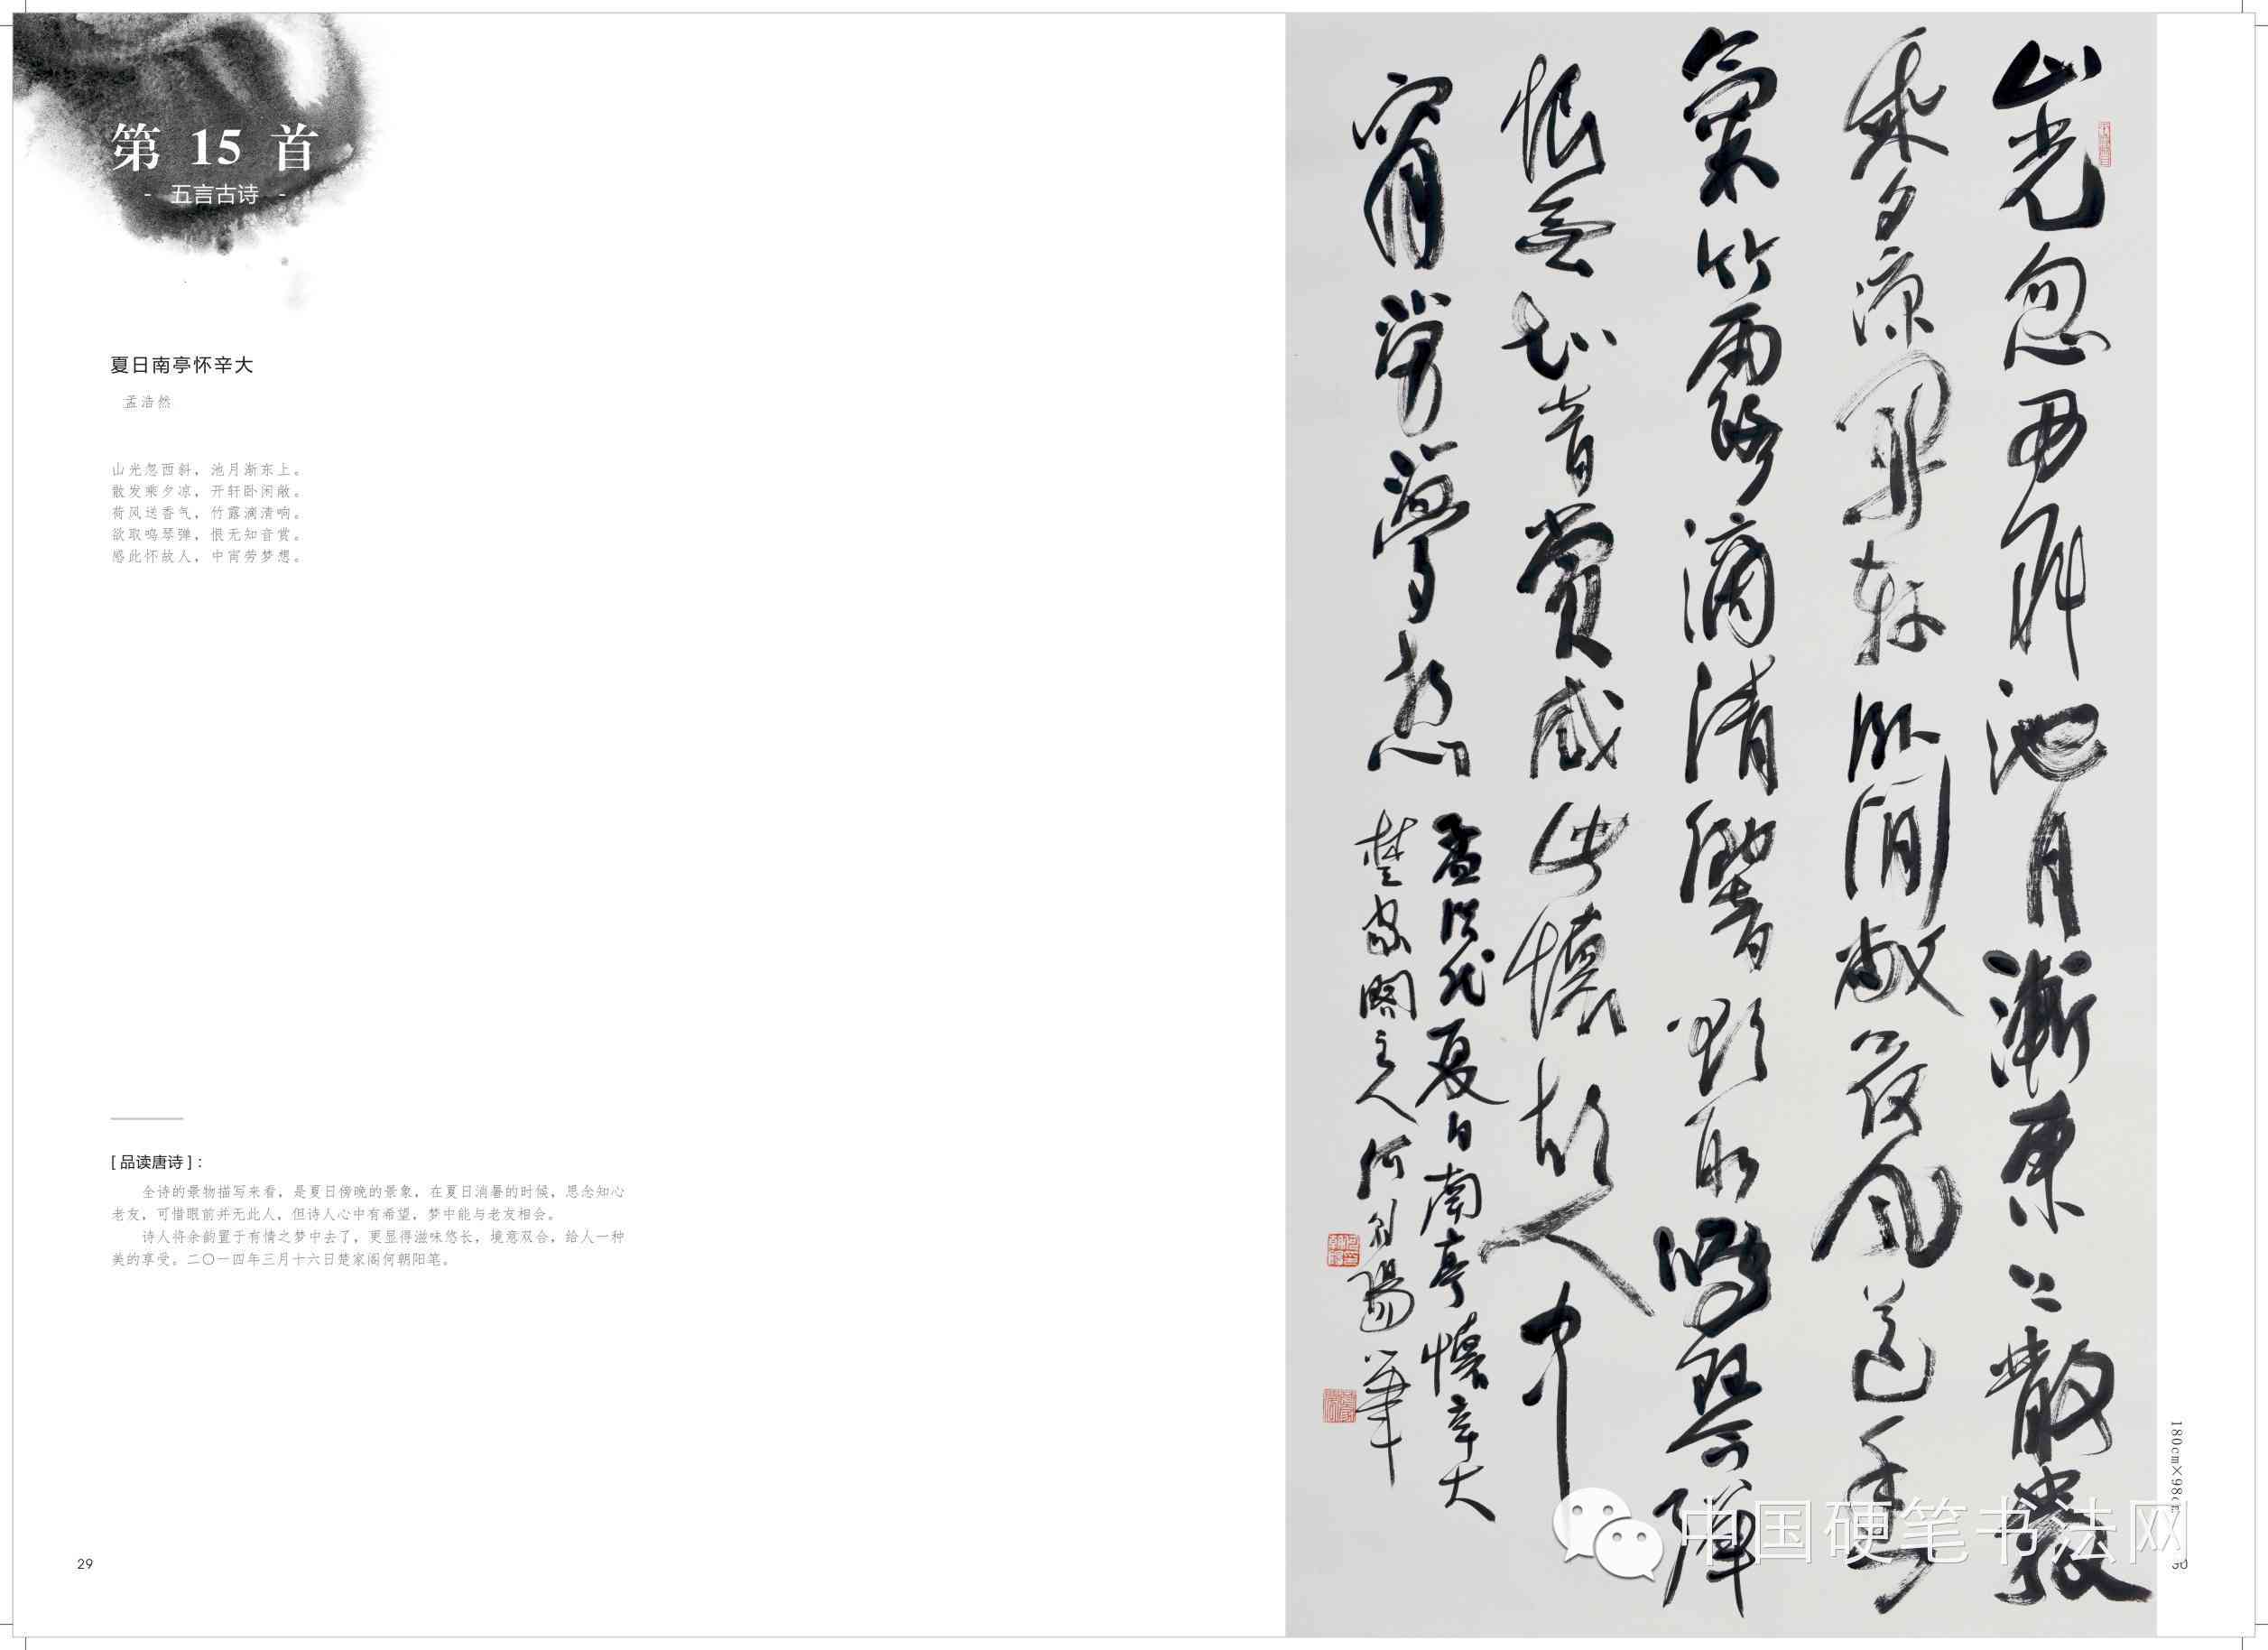 第 15 首
- 五言古诗 -
夏日南亭怀辛大
孟浩然
山光忽西斜，池月渐东上。
散发乘夕凉，开轩卧闲敞。
荷风送香气，竹露滴清响。
欲取鸣琴弹，恨无知音赏。
感此怀故人，中宵劳梦想。
[ 品读唐诗 ]：
全诗的景物描写来看，是夏日傍晚的景象，在夏日消暑的时候，思念知心
老友，可惜眼前并无此人，但诗人心中有希望，梦中能与老友相会。
诗人将余韵置于有情之梦中去了，更显得滋味悠长，境意双合，给人一种
美的享受。二〇一四年三月十六日楚家阁何朝阳笔。
29
山光忽西斜池月漸東上散發
乘夕涼開軒臥閒敞荷風送香
氣竹露滴清響欲取鳴琴彈
恨無知音賞感此懷故人中
宵勞夢想
孟浩然夏日南亭懷辛大
楚家閣主人何朝陽筆
180cm×98c
中国硬笔书法网
30